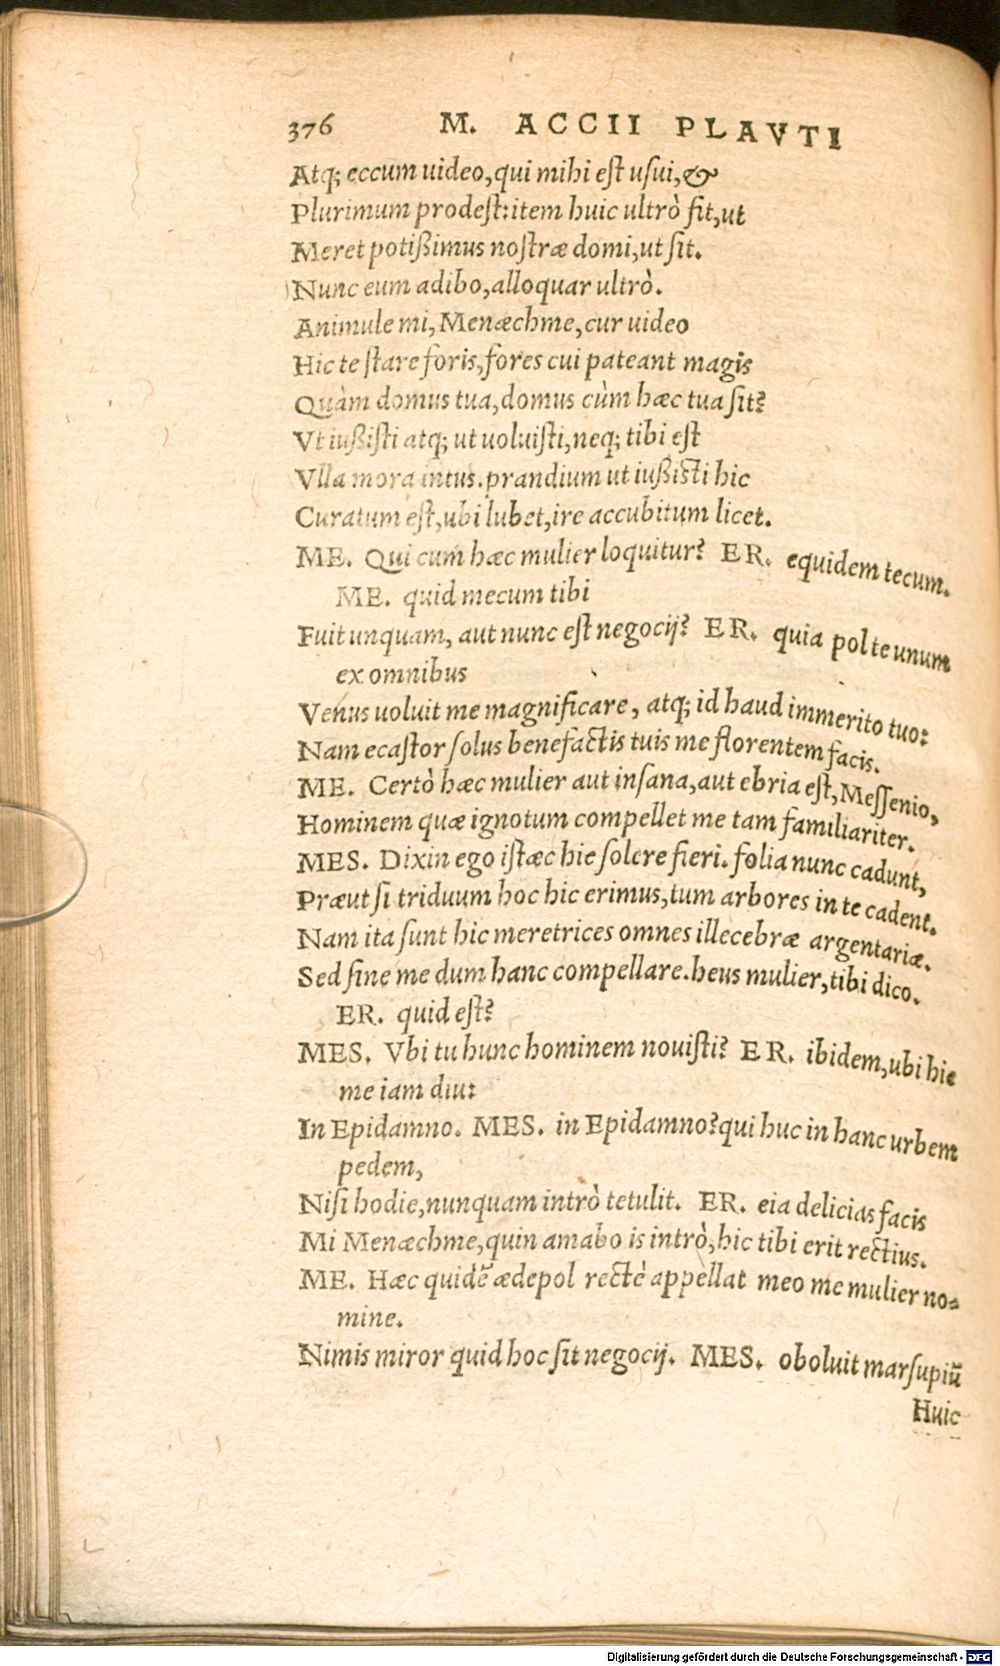 376 M. ACCII PLAVTI
Atq; eccum uideo, qui mihi est usui, &
Plurimum prodest: item huic ultrò fit, ut
Meret potißimus nostræ domi, ut sit.
Nunc eum adibo, alloquar ultrò.
Animule mi, Menæchme, cur uideo
Hic te stare foris, fores cui pateant magis
Quàm domus tua, domus cùm hæc tua sit?
Vt iußisti atq; ut uoluisti, neq; tibi est
Vlla mora intus. prandium ut iußisti hic
Curatum est, ubi lubet, ire accubitum licet.
ME. Qui cum hæc mulier loquitur? ER. equidem tecum.
ME. quid mecum tibi
Fuit unquam, aut nunc est negocij? ER. quia pol te unum
ex omnibus
Venus uoluit me magnificare, atq; id haud immerito tuo:
Nam ecastor solus benefactis tuis me florentem facis.
ME. Certò hæc mulier aut insana, aut ebria est, Messenio,
Hominem quæ ignotum compellet me tam familiariter.
MES. Dixin ego istæc hic solere fieri. folia nunc cadunt,
Præut si triduum hoc hic erimus, tum arbores in te cadent.
Nam ita sunt hic meretrices omnes illecebræ argentariæ.
Sed sine me dum hanc compellare. heus mulier, tibi dico.
ER. quid est?
MES. Vbi tu hunc hominem nouisti? ER. ibidem, ubi hic
me iam diu:
In Epidamno. MES. in Epidamno? qui huc in hanc urbem
pedem,
Nisi hodie, nunquam intrò tetulit. ER. eia delicias facis
Mi Menæchme, quin amabo is intrò, hic tibi erit rectius.
ME. Hæc quidē ædepol rectè appellat meo me mulier no-
mine.
Nimis miror quid hoc sit negocij. MES. oboluit marsupiū
Huic
Digitalisierung gefördert durch die Deutsche Forschungsgemeinschaft - DFG